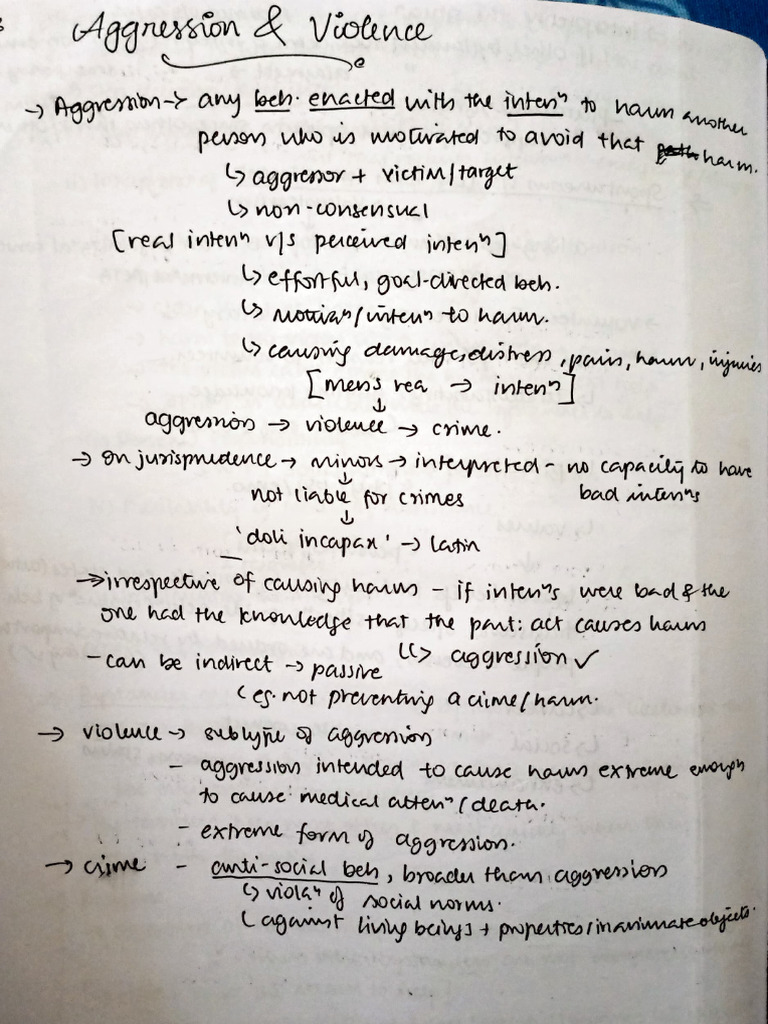 Aggression & Violence
→ Aggression → any beh. enacted with the intenⁿ to harm another
person who is motivated to avoid that harm.
↳ aggressor + victim/target
↳ non-consensual
[real intenⁿ v/s perceived intenⁿ]
↳ effortful, goal-directed beh.
↳ motivaⁿ/intenⁿ to harm.
↳ causing damage, distress, pain, harm, injuries
[mens rea → intenⁿ]
↓
aggression → violence → crime.
→ In jurisprudence → minors → interpreted - no capacity to have
↓
not liable for crimes bad intenⁿs
↓
'doli incapax' → latin
→ irrespective of causing harm - if intenⁿs were bad & the
one had the knowledge that the part: act causes harm
↳ aggression ✓
- can be indirect → passive
↳ eg. not preventing a cime/harm.
→ violence → subtype of aggression
- aggression intended to cause harm extreme enough
to cause medical attenⁿ/death.
- extreme form of aggression.
→ crime - anti-social beh, broader than aggression
↳ violaⁿ of social norms.
↳ against living beings + properties/inanimate objects.